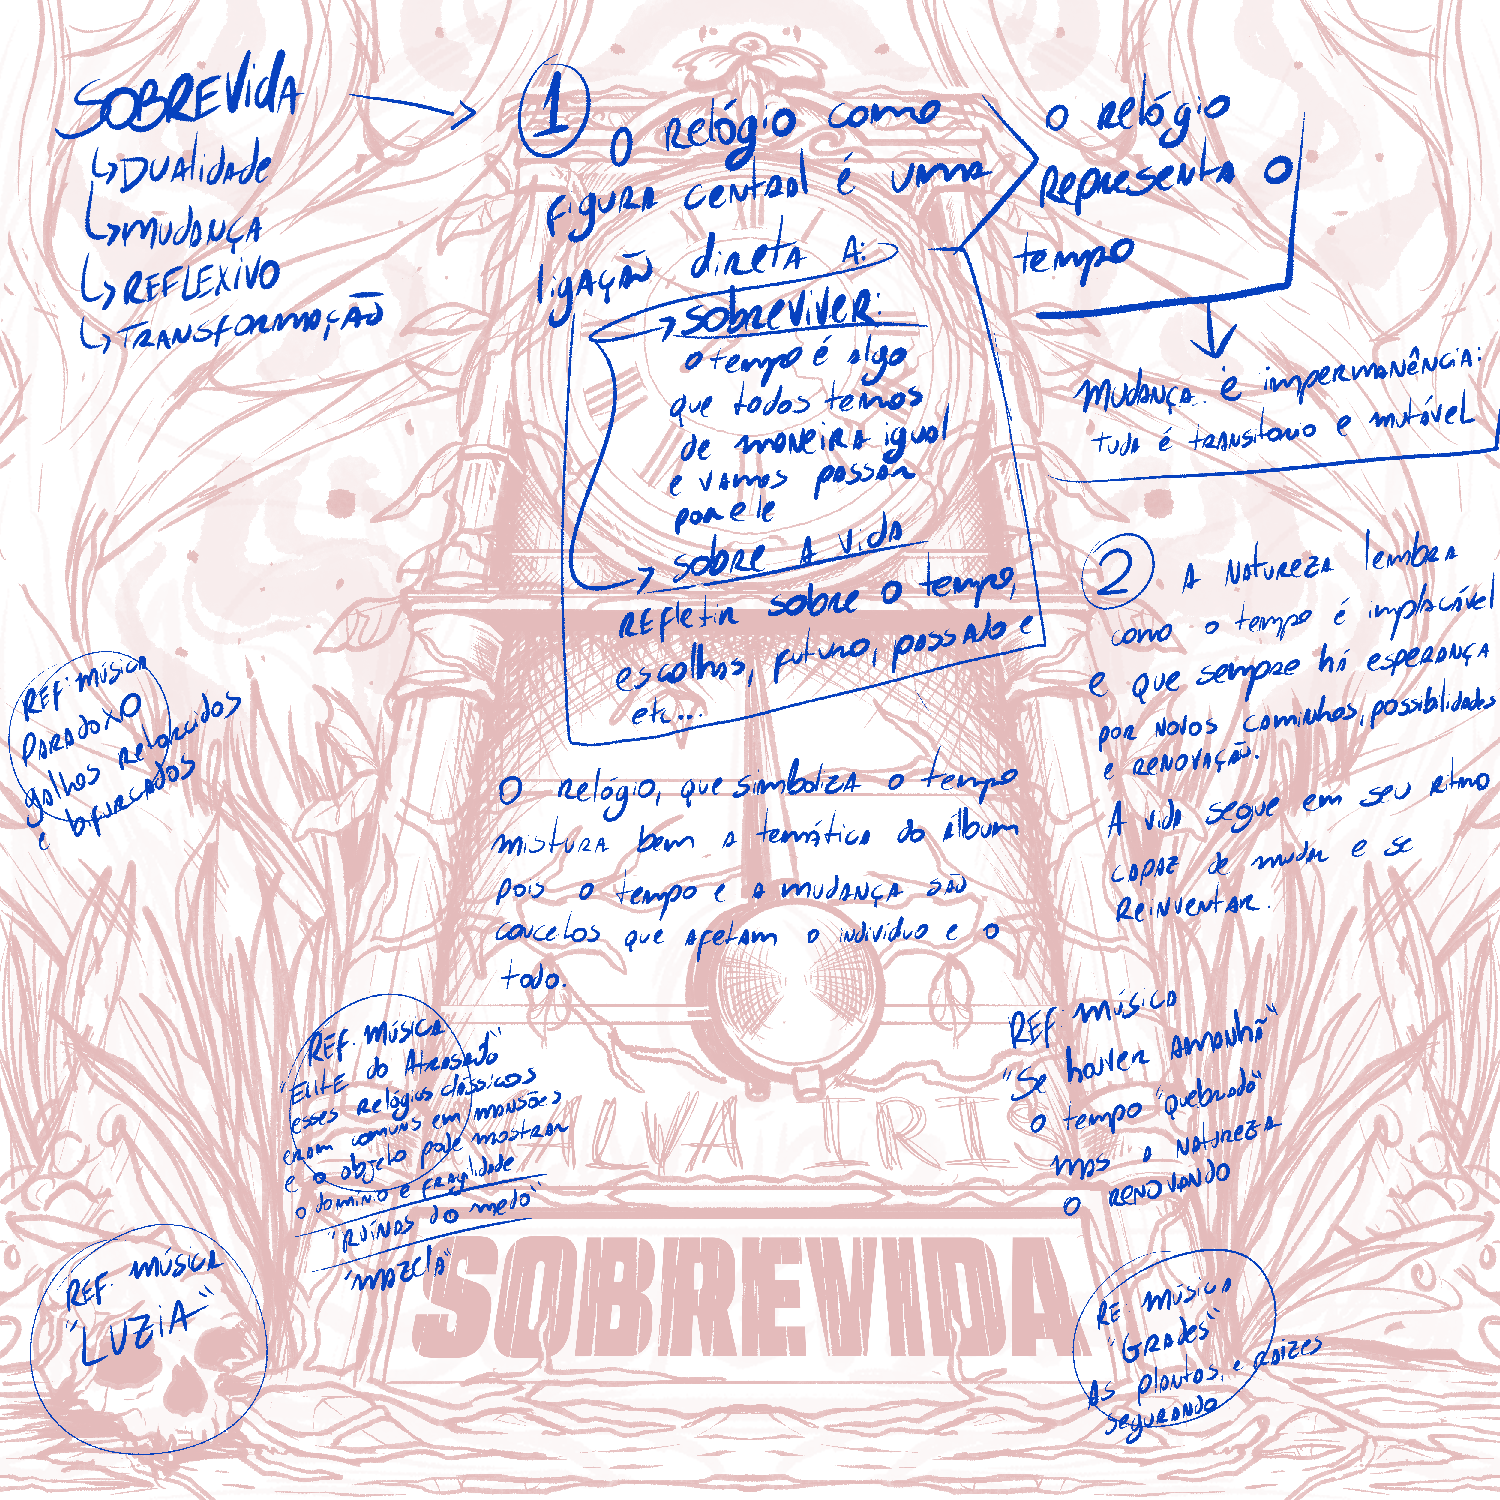 SOBREVIDA
↳ DUALIDADE
↳ MUDANÇA
↳ REFLEXIVO
↳ TRANSFORMAÇÃO
1 O RELÓGIO COMO
FIGURA CENTRAL É UMA
LIGAÇÃO DIRETA A:
→ SOBREVIVER:
O TEMPO É ALGO
QUE TODOS TEMOS
DE MANEIRA IGUAL
E VAMOS PASSAR
POR ELE
→ SOBRE A VIDA
REFLETIR SOBRE O TEMPO,
ESCOLHAS, FUTURO, PASSADO E
ETC...
O RELÓGIO
REPRESENTA O
TEMPO
MUDANÇA E IMPERMANÊNCIA:
TUDO É TRANSITORIO E MUTÁVEL
2 A NATUREZA LEMBRA
COMO O TEMPO É IMPLACÁVEL
E QUE SEMPRE HÁ ESPERANÇA
POR NOVOS CAMINHOS, POSSIBILIDADES
E RENOVAÇÃO.
A VIDA SEGUE EM SEU RITMO
CAPAZ DE MUDAR E SE
REINVENTAR.
REF: MÚSICA
PARADOXO
GALHOS RETORCIDOS
E BIFURCADOS
O RELÓGIO, QUE SIMBOLIZA O TEMPO
MISTURA BEM A TEMÁTICA DO ÁLBUM
POIS O TEMPO E A MUDANÇA SÃO
CONCEITOS QUE AFETAM O INDIVÍDUO E O
TODO.
REF: MÚSICA
"ELITE DO ATRASADO"
ESSES RELÓGIOS CLÁSSICOS
ERAM COMUNS EM MANSÕES
E O OBJETO PODE MOSTRAR
O DOMÍNIO E FRAGILIDADE
"RUÍNAS DO MEDO"
"MAZELA"
REF: MÚSICA
"SE HOUVER AMANHÃ"
O TEMPO "QUEBRADO"
MAS A NATUREZA
O RENOVANDO
REF: MÚSICA
"LUZIA"
RE: MÚSICA
"GRADES"
AS PLANTAS, E RAIZES
SEGURANDO
ALVA IRIS
SOBREVIDA